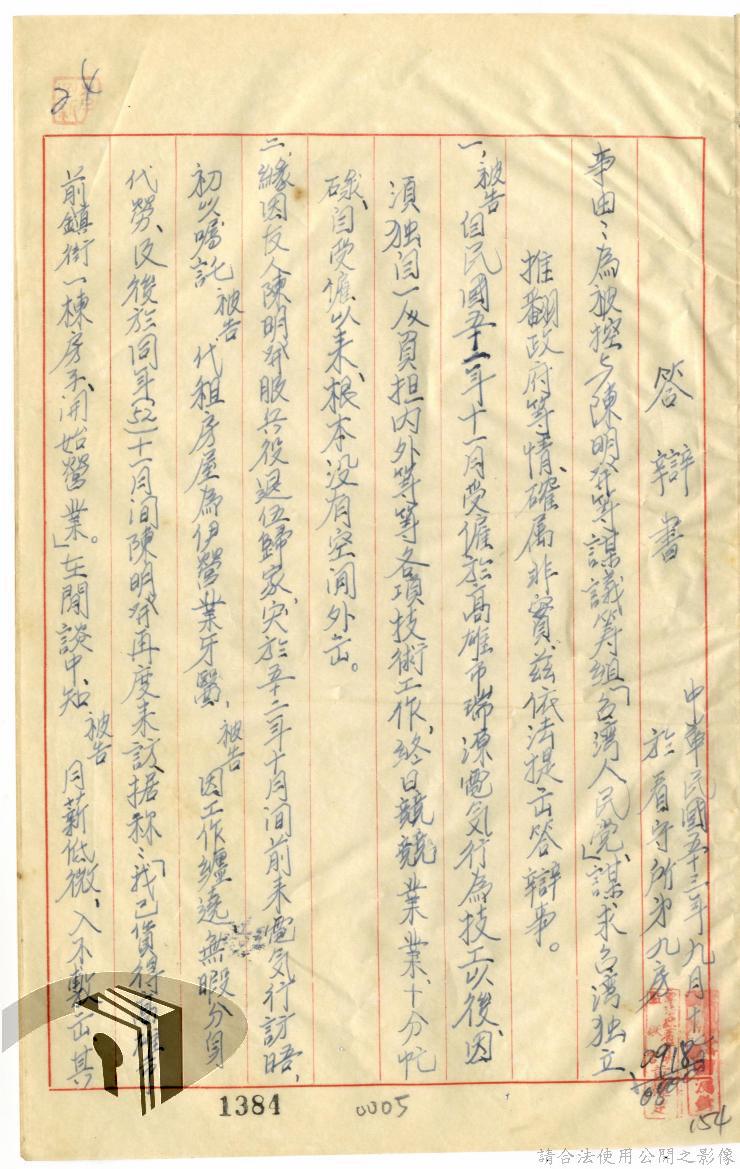 答辯書
中華民國五十三年九月十
於看守所第九房
事由:為被控与陳明發等謀議籌組「台湾人民党」謀求台湾独立、
推翻政府等情、確属非實、茲依法提出答辯事。
一、被告自民國五十一年十一月受僱於高雄市瑞源電気行為技工以後、因
須独自一人負担内外等等各項技術工作、終日競競業業、十分忙
碌、自受僱以来、根本没有空间外出。
二、緣因友人陳明發服兵役退伍歸家、突於五十二年十月间前来電気行訪晤,
初以囑託被告代租房屋為伊營業牙醫,被告因工作纏遶無暇分身
代勞、及後於同年(52)十一月间陳明發再度来訪据称:「我已貨得
前鎮街一棟房子、開始營業。」在閒談中、知被告月薪低微,入不敷出其
24
1384
0005
0918
154
請合法使用公開之影像